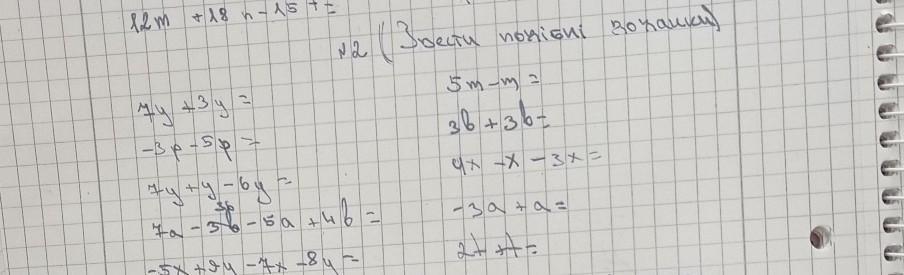 12m + 18n - 15t =
№2 (Звести подібні доданки)
7y + 3y =
-3p - 5p =
7y + y - 6y =
7a - 3b - 5a + 4b =
-5x + 9y - 7x - 8y =
5m - m =
3b + 3b =
4x - x - 3x =
-3a + a =
2t + t =